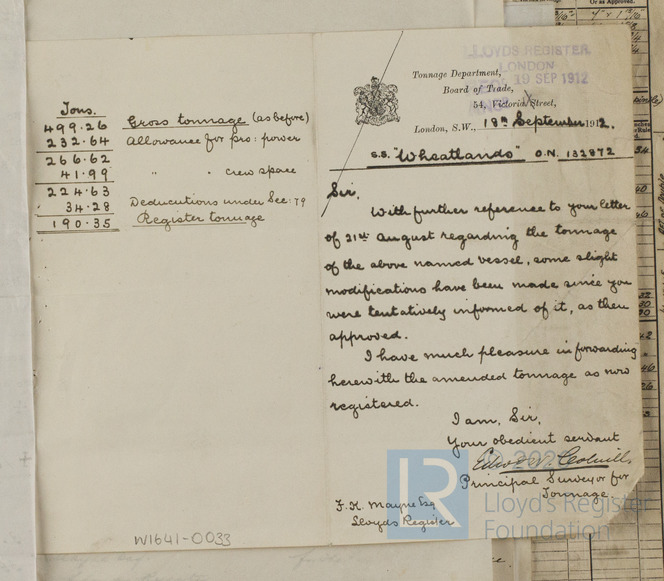 Tons.
499.26 Gross tonnage (as before)
232.64 Allowance for pro: power
266.62
41.99 " " crew space
224.63
34.28 Deducutions under Sec: 79
190.35 Register tonnage
W1641-0033
LLOYD'S REGISTER
LONDON
19 SEP 1912
Tonnage Department,
Board of Trade,
54, Victoria Street,
London, S.W., 18th September 1912.
S.S. "Wheatlands" O.N. 132872
Sir,
With further reference to your letter
of 21st August regarding the tonnage
of the above named vessel, some slight
modifications have been made since you
were tentatively informed of it, as then
approved.
I have much pleasure in forwarding
herewith the amended tonnage as now
registered.
I am, Sir,
Your obedient servant
Principal Surveyor for
Tonnage.
F. K. Mayne Esq
Lloyds Register
LR
Lloyd's Register
Foundation